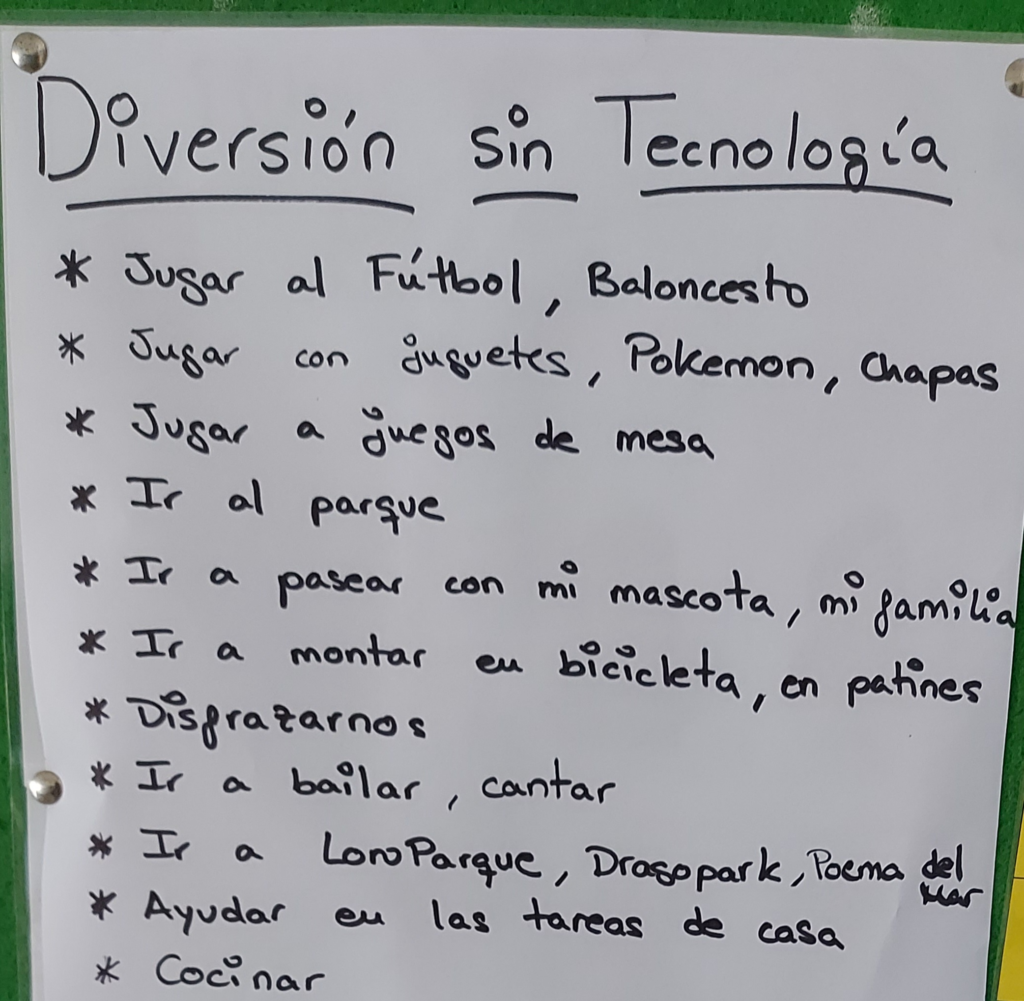 Diversión sin Tecnología
* Jugar al Fútbol, Baloncesto
* Jugar con juguetes, Pokemon, Chapas
* Jugar a juegos de mesa
* Ir al parque
* Ir a pasear con mi mascota, mi familia
* Ir a montar en bicicleta, en patines
* Disfrazarnos
* Ir a bailar, cantar
* Ir a LoroParque, Dragopark, Poema del Mar
* Ayudar en las tareas de casa
* Cocinar